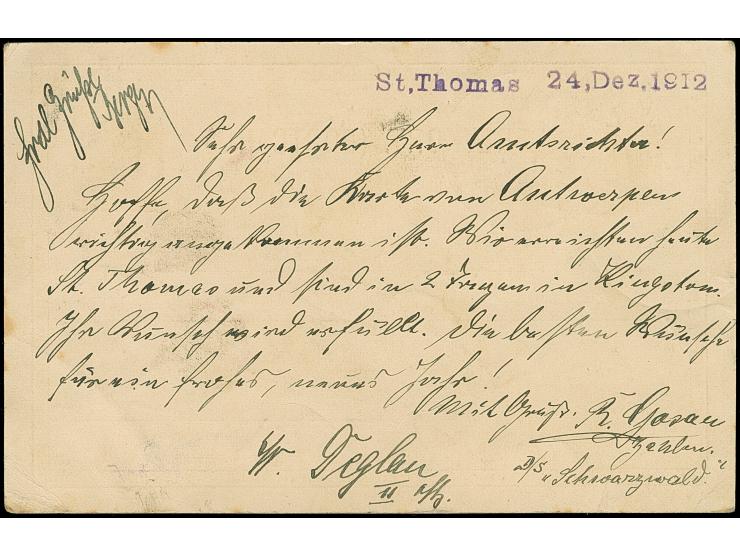 St, Thomas 24, Dez, 1912
Sehr geehrter Herr Amtsrichter!
Hoffe, daß die Karte von Antwerpen
richtig angekommen ist. Wir erreichten heute
St. Thomas und sind in 2 Tagen in Kingston.
Ihr Wunsch wird erfüllt. Die besten Wünsche
für ein frohes, neues Jahr!
Mit Gruß. R.
D/S „Schwarzwald."
W. Deglau
II